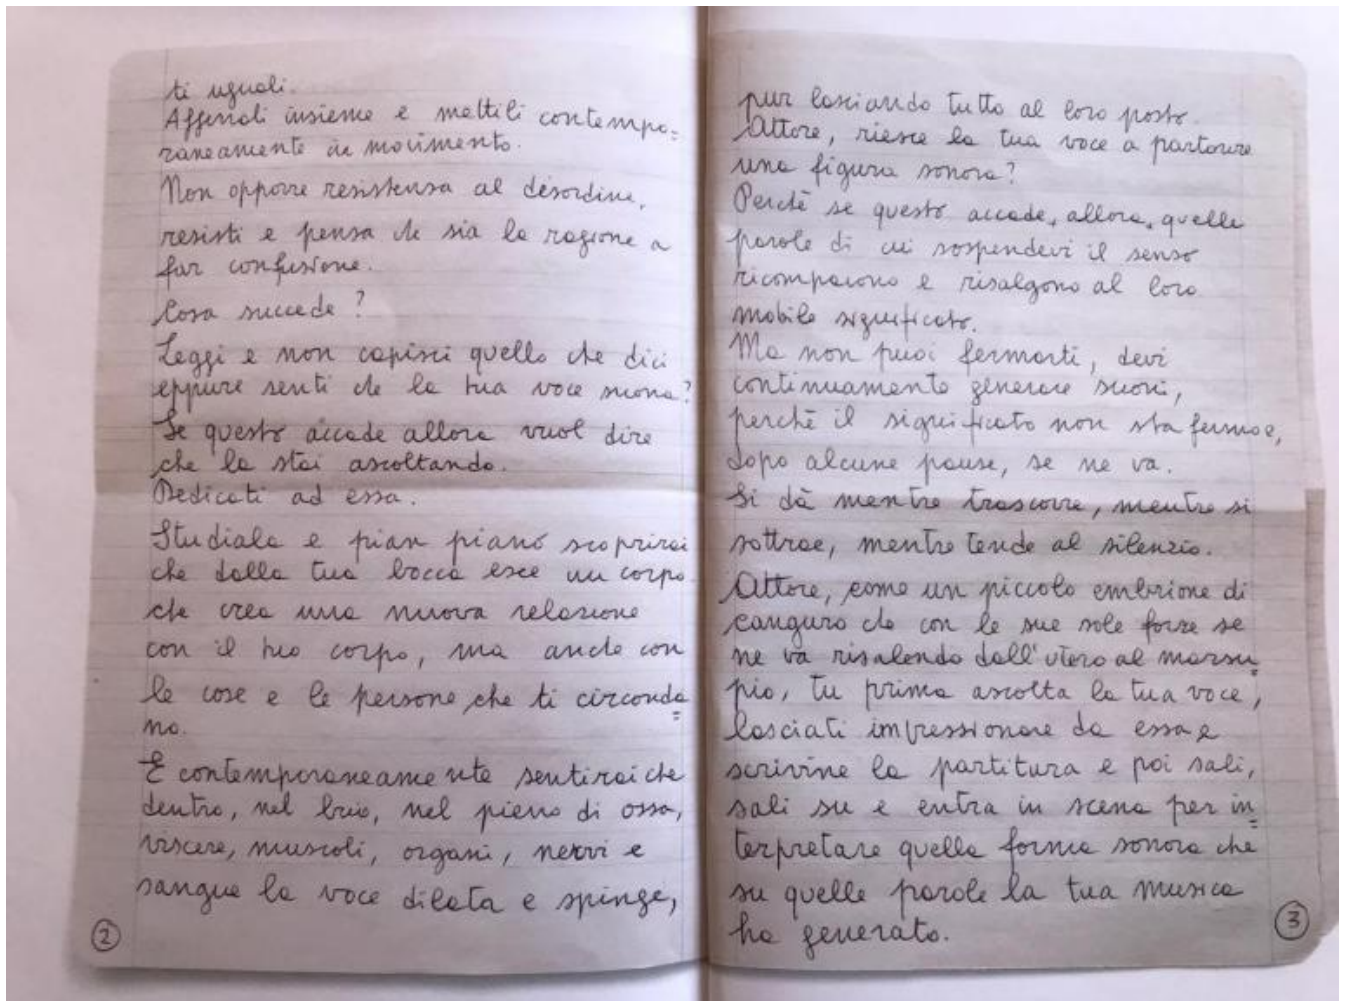 ti uguali.
Afferrali insieme e mettili contempo=
raneamente in movimento.
Non opporre resistenza al disordine,
resisti e pensa che sia la ragione a
far confusione.
Cosa succede ?
Leggi e non capisci quello che dici
eppure senti che la tua voce suona?
Se questo accade allora vuol dire
che la stai ascoltando.
Dedicati ad essa.
Studiala e pian piano scoprirai
che dalla tua bocca esce un corpo
che crea una nuova relazione
con il tuo corpo, ma anche con
le cose e le persone che ti circonda=
no.
E contemporaneamente sentirai che
dentro, nel buio, nel pieno di ossa,
viscere, muscoli, organi, nervi e
sangue la voce dilata e spinge,
②
pur lasciando tutto al loro posto.
Attore, riesce la tua voce a partorire
una figura sonora?
Perchè se questo accade, allora, quelle
parole di cui sospendevi il senso
ricompaiono e risalgono al loro
mobile significato.
Ma non puoi fermarti, devi
continuamente generare suoni,
perchè il significato non sta fermo e,
dopo alcune pause, se ne va.
Si dà mentre trascorre, mentre si
sottrae, mentre tende al silenzio.
Attore, come un piccolo embrione di
canguro che con le sue sole forze se
ne va risalendo dall'utero al marsu=
pio, tu prima ascolta la tua voce,
lasciati impressionare da essa e
scrivine la partitura e poi sali,
sali su e entra in scena per in=
terpretare quella forma sonora che
su quelle parole la tua musica
ha generato.
③